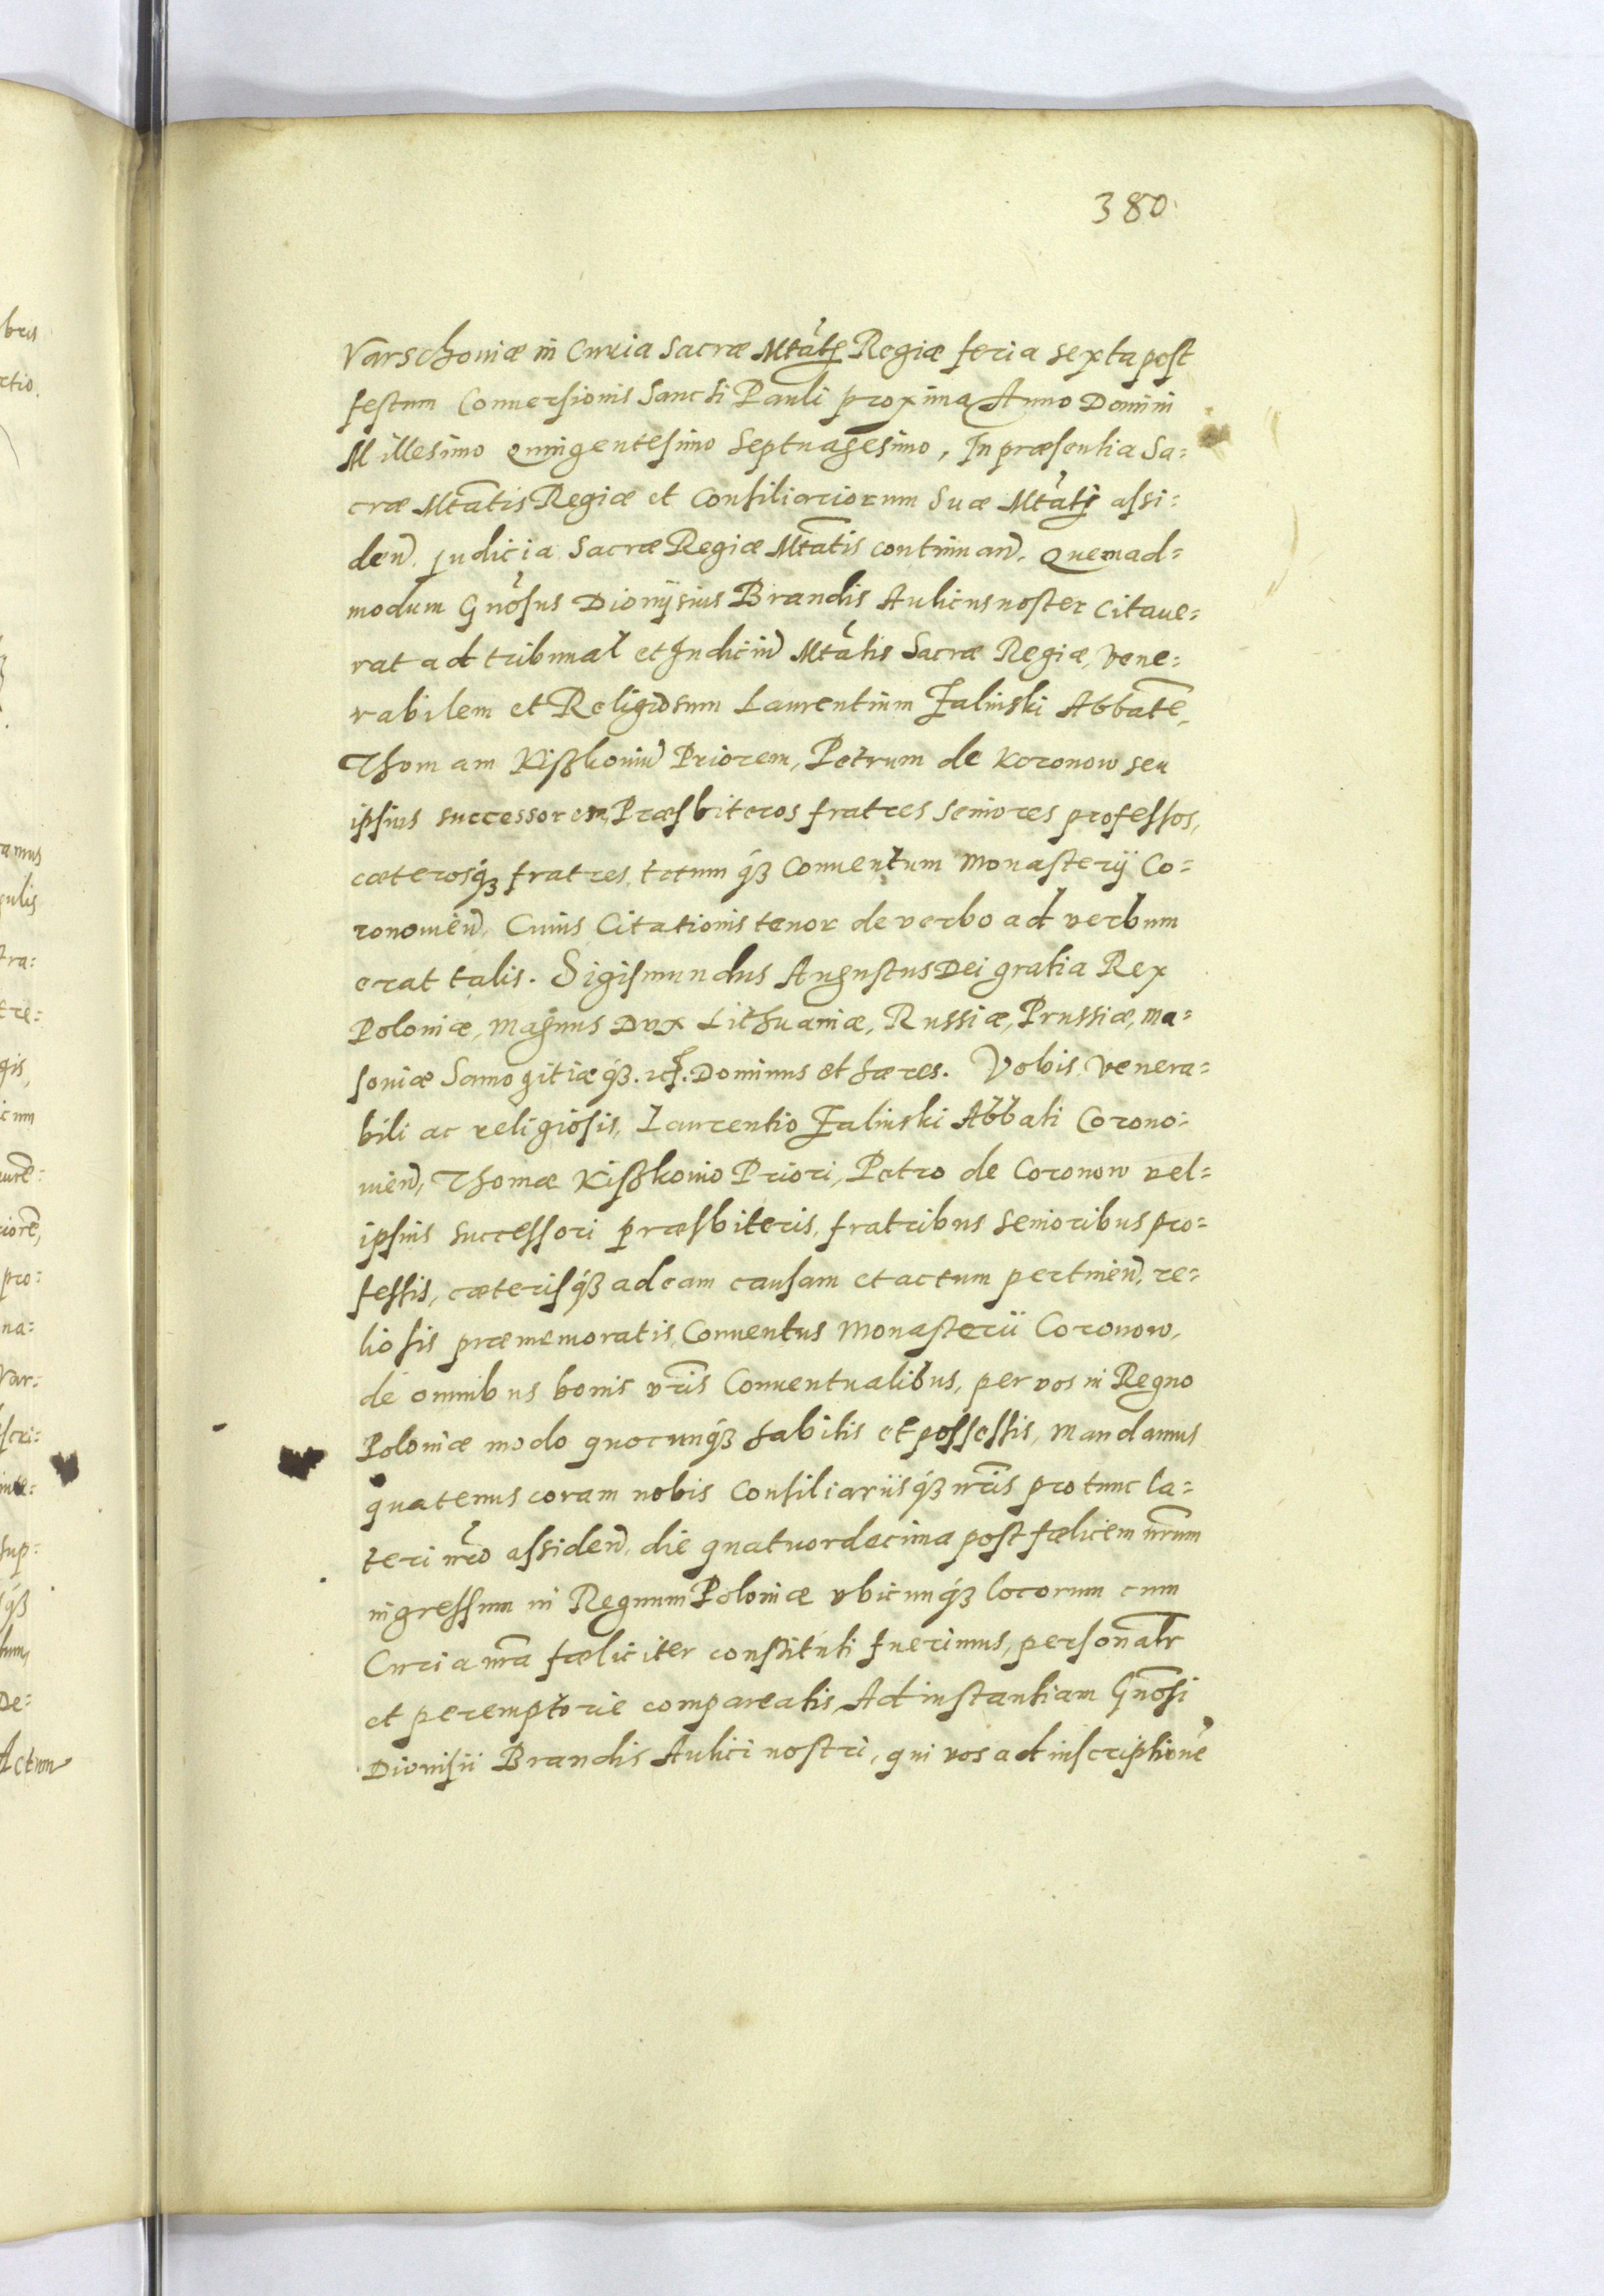 380
Varschouiæ in Curia Sacræ Mtatis Regiæ feria sexta post
festum Conuersionis Sancti Pauli proxima Anno Domini
Millesimo Quingentesimo Septuagesimo, In præsentia Sa=
cræ Mtatis Regiæ et Consiliariorum Suæ Mtatis assi=
den̄. judicia Sacræ Regiæ Mtatis continuan̄. Quemad=
modum Gn̄osus Dionÿsius Brandis Aulicus noster Citaue=
rat ad tribunal et Judiciū Mtatis Sacræ Regiæ, Vene=
rabilem et Religiosum Laurentium Zalinski Abbatē,
Thomam Kißkouiū Priorem, Petrum de Koronow seu
ipsius successorem, Præsbiteros fratres seniores professos,
cæterosqꝫ fratres, totum qꝫ Conuentum Monasterij Co=
ronouien̄. Cuius Citationis tenor de verbo ad verbum
erat talis. Sigismundus Augustus Dei gratia Rex
Poloniæ, Magnus Dux Lithuaniæ, Russiæ, Prussiæ, Ma=
souiæ Samogitiæ qꝫ. etc. Dominus et hæres. Vobis, Venera=
bili ac religiosis, Laurentio Zalinski Abbati Corono=
uien̄, Thomæ Kißkouio Priori, Petro de Coronow vel=
ipsius successori præsbiteris, fratribus senioribus pro=
fessis, cæterisqꝫ ad eam causam et actum pertinen̄. re=
liosis præmemoratis, Conuentus Monasterii Coronow,
de omnibus bonis vr̄is Conuentualibus, per vos in Regno
Poloniæ modo quocunqꝫ habitis et possessis, Mandamus
quatenus coram nobis Consiliariisqꝫ nr̄is pro tunc la=
teri nr̄o assiden̄. die quatuordecima post fælicem nr̄um
ingressum in Regnum Poloniæ vbicunqꝫ locorum cum
Curia nr̄a fæliciter constituti fuerimus, personalr̄
et peremptorie compareatis, Ad instantiam Gn̄osi
Dionisii Brandis Aulici nostri, qui vos ad inscriptionē